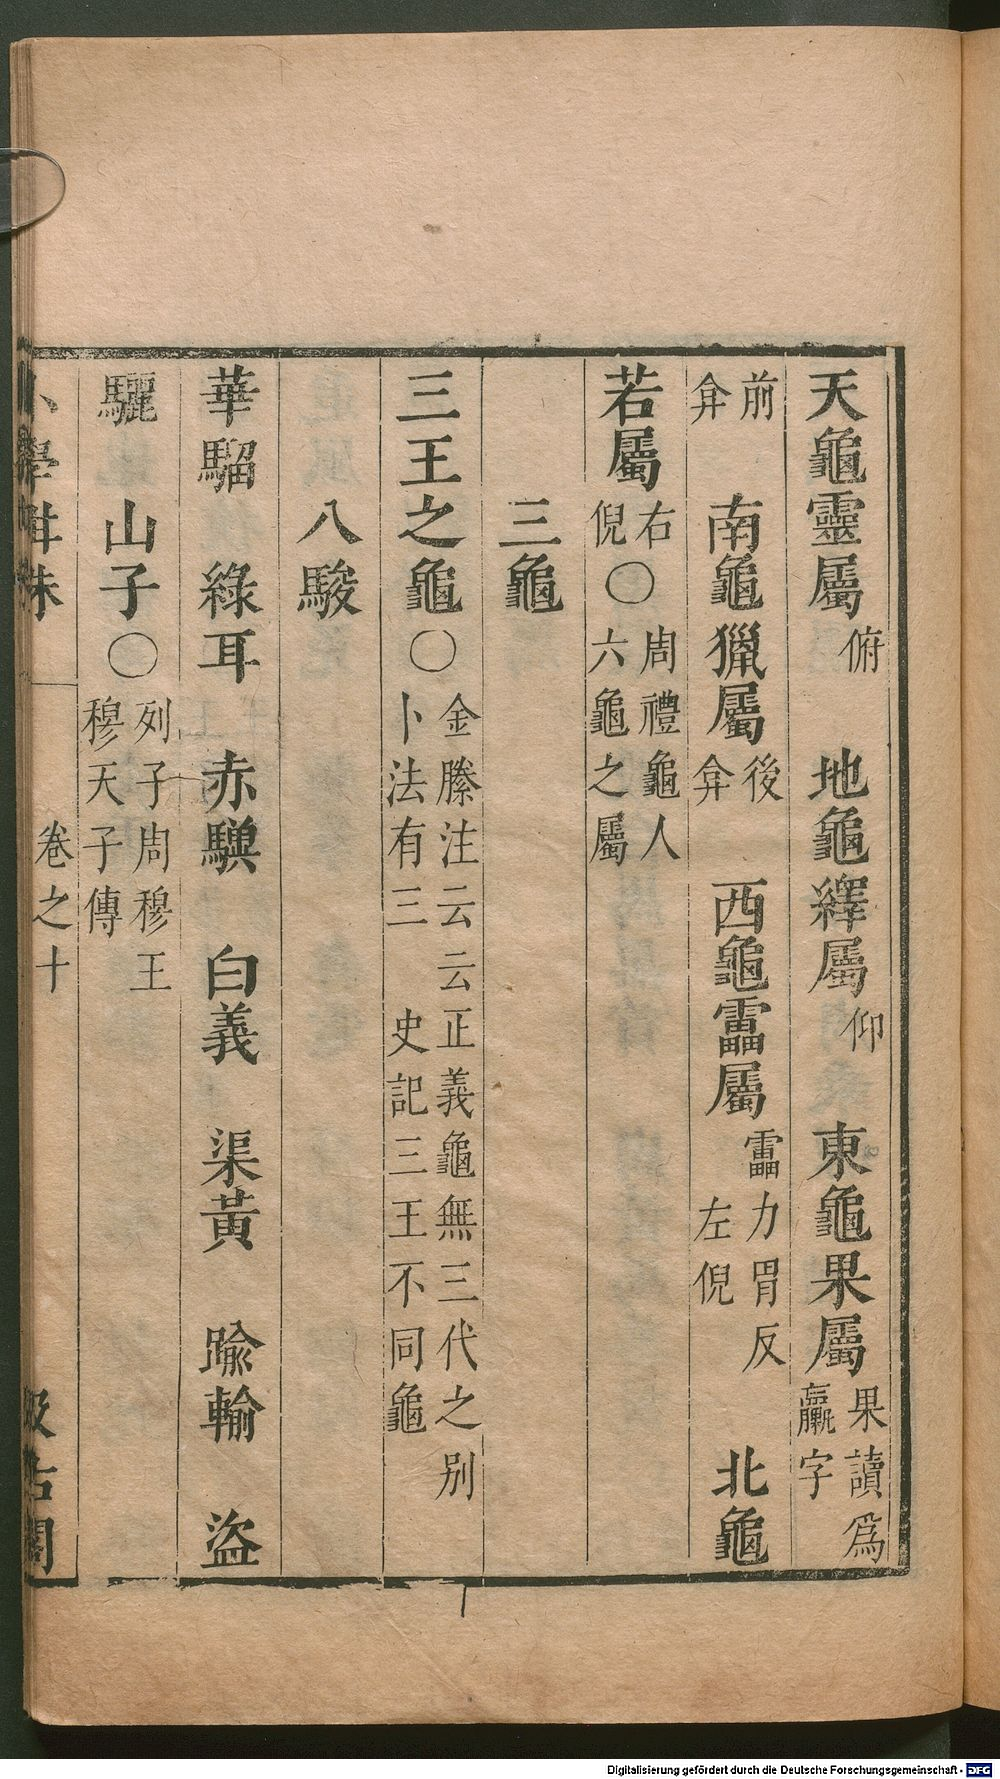 天龜靈屬俯 地龜繹屬仰 東龜果屬果讀爲臝字
前弇 南龜獵屬後弇 西龜靁屬靁力胃反左倪 北龜
若屬右倪〇周禮龜人六龜之屬
三龜
三王之龜〇金縢注云云正義龜無三代之別卜法有三 史記三王不同龜
八駿
華騮 綠耳 赤驥 白義 渠黃 踰輪 盜
驪 山子〇列子周穆王穆天子傳
小學紺珠 卷之十 汲古閣
Digitalisierung gefördert durch die Deutsche Forschungsgemeinschaft - DFG